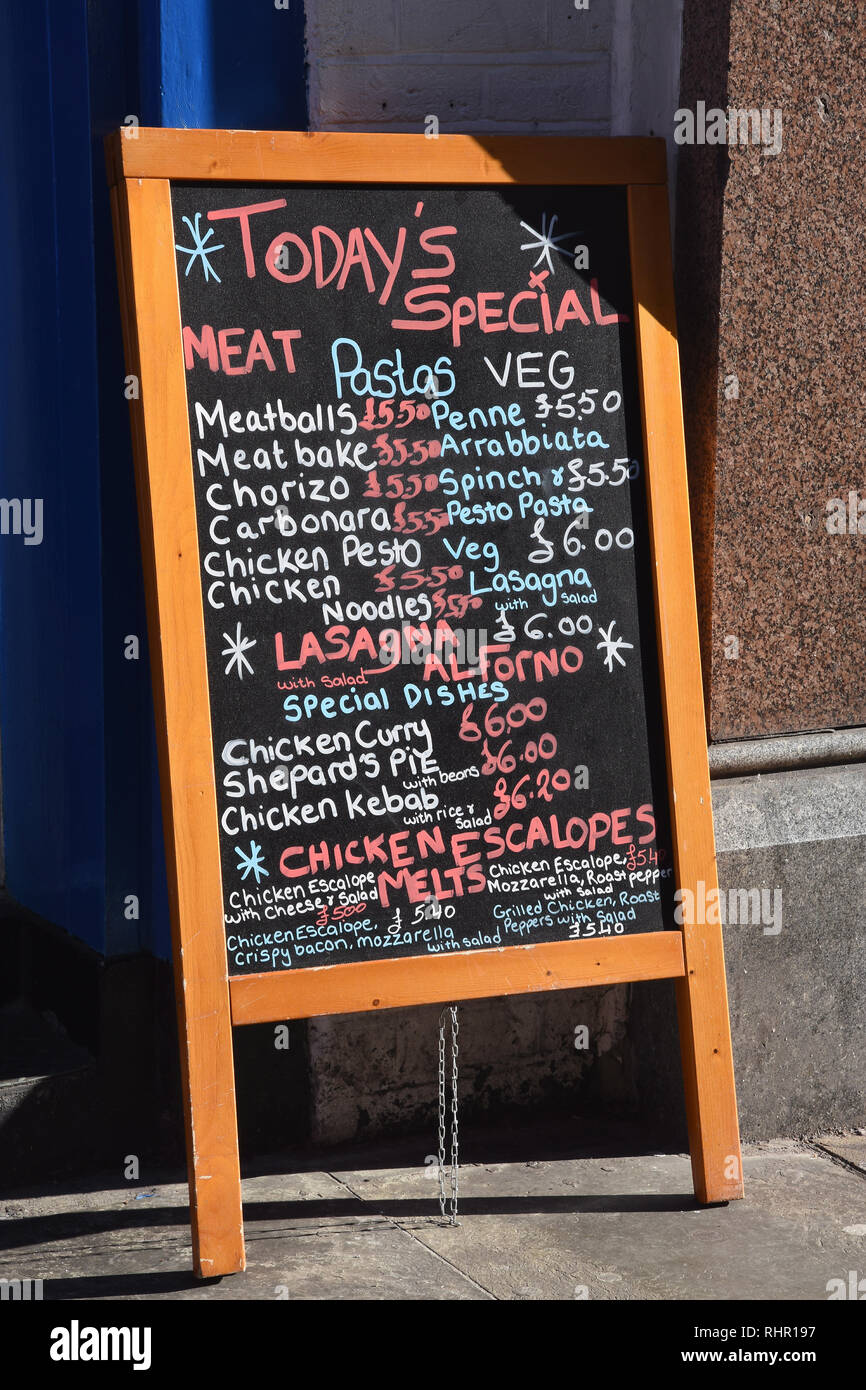 TODAY'S
SPECIAL
MEAT
Pastas VEG
Meatballs £5.50
Meat bake £5.50
Chorizo £5.50
Carbonara £5.50
Chicken Pesto
Chicken £5.50
Noodles £5.50
Penne £5.50
Arrabbiata
Spinch & £5.50
Pesto Pasta
Veg £6.00
Lasagna
with salad
£6.00
LASAGNA
with salad AL FORNO
SPecial DISHES
Chicken Curry £6.00
Shepard's PiE with beans £6.00
Chicken Kebab with rice & salad £6.20
CHICKEN ESCALOPES
MELTS
Chicken Escalope
with Cheese & Salad
£500
Chicken Escalope, £540
Mozzarella, Roast pepper
with salad
Chicken Escalope, £540
Crispy bacon, mozzarella with salad
Grilled Chicken, Roast
Peppers with Salad
£540
alamy
alamy
Image ID: RHR197
www.alamy.com